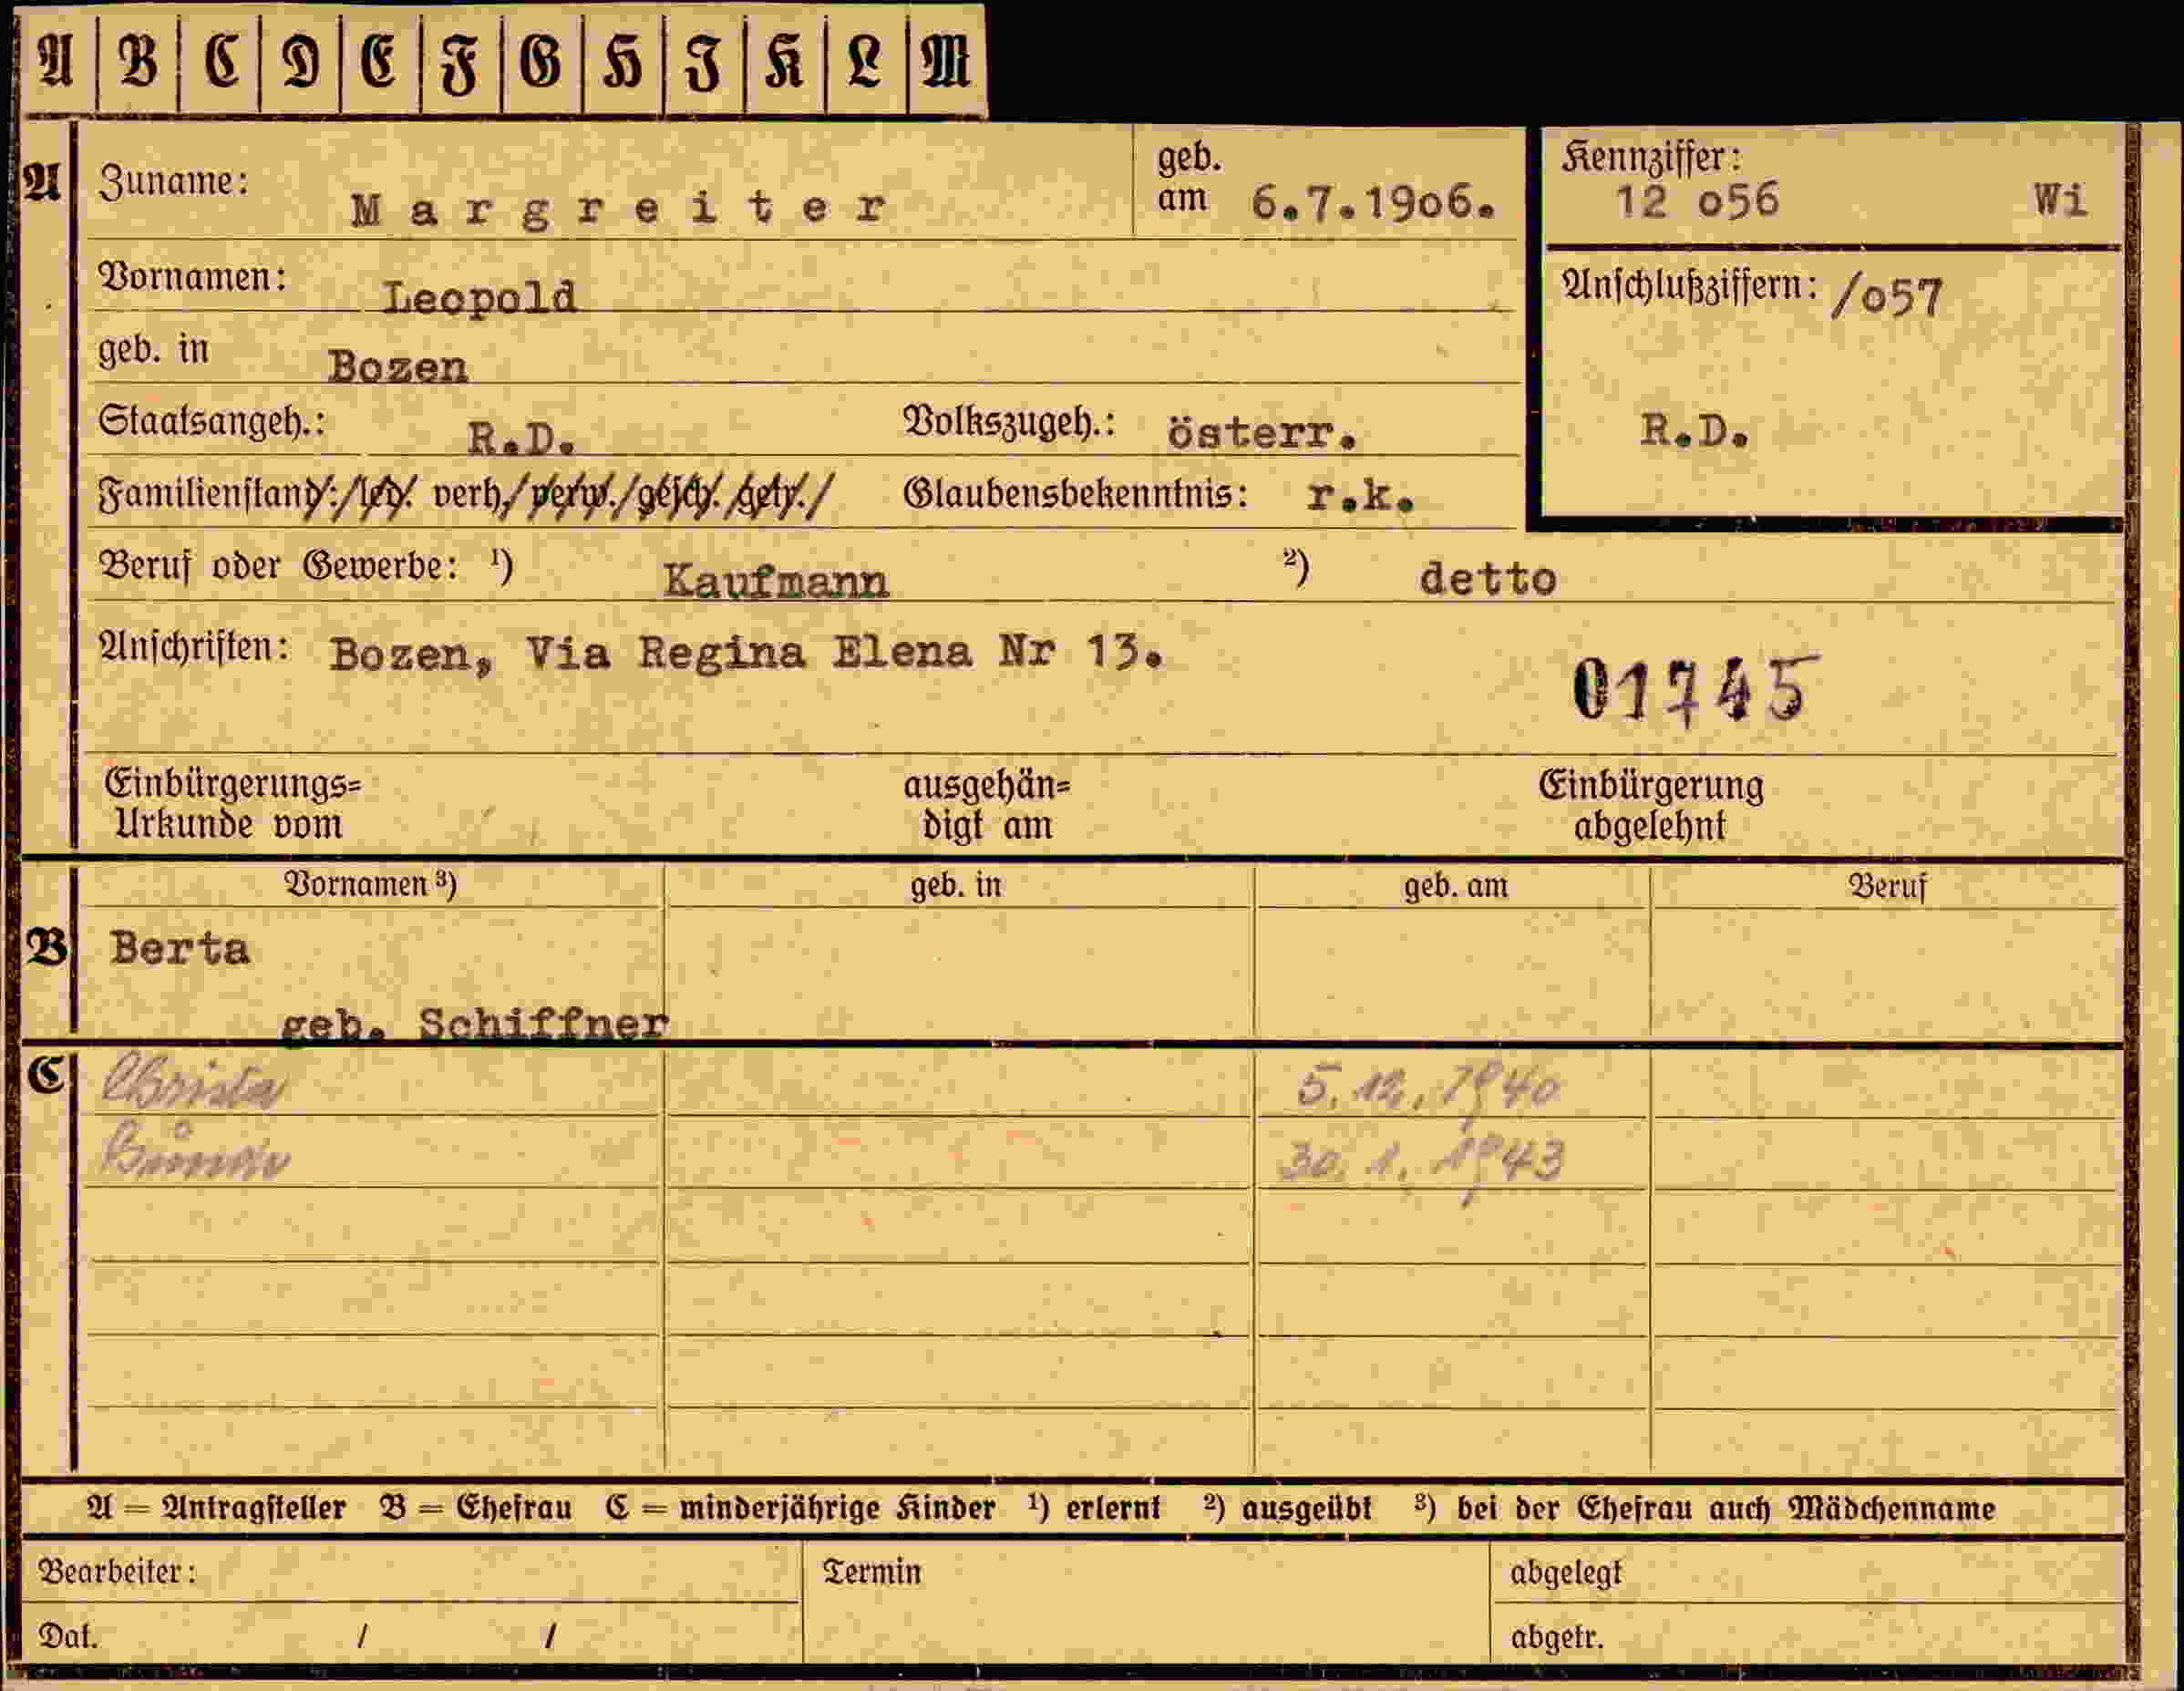 A B C D E F G H J K L M
A Zuname: Margreiter geb. am 6.7.19o6. Kennziffer: 12 o56 Wi
Vornamen: Leopold Anschlußziffern: /o57
geb. in Bozen
Staatsangeh.: R.D. Volkszugeh.: österr. R.D.
Familienstand:/led. verh./verw./gesch./getr./ Glaubensbekenntnis: r.k.
Beruf oder Gewerbe: ¹) Kaufmann ²) detto
Anschriften: Bozen, Via Regina Elena Nr 13.
01745
Einbürgerungs= ausgehän= Einbürgerung
Urkunde vom digt am abgelehnt
Vornamen ³) geb. in geb. am Beruf
B Berta
geb. Schiffner
C Christa 5.12.1940
30.1.1943
A = Antragsteller B = Ehefrau C = minderjährige Kinder ¹) erlernt ²) ausgeübt ³) bei der Ehefrau auch Mädchenname
Bearbeiter: Termin abgelegt
Dat. / / abgetr.